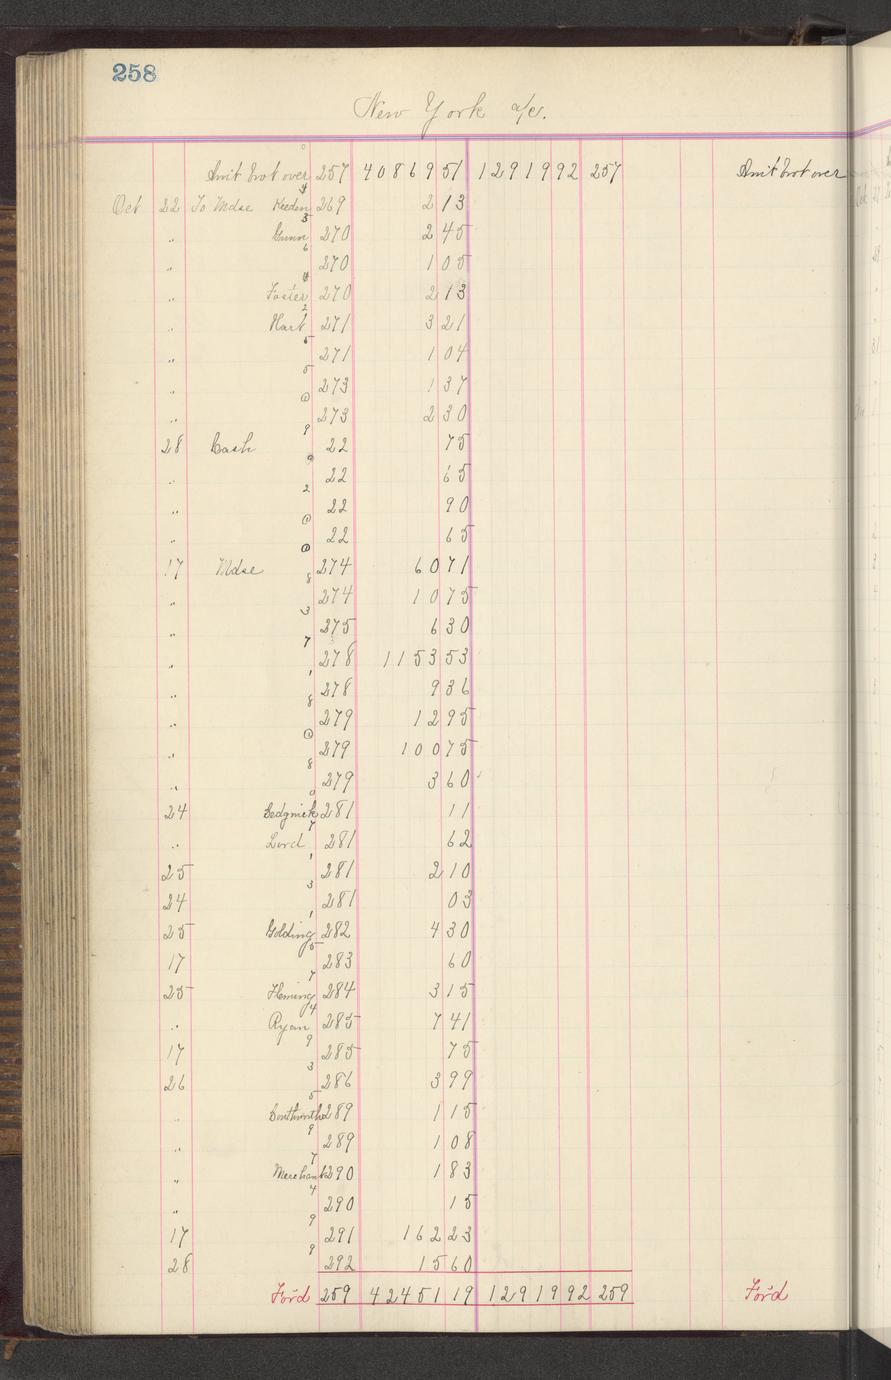 258
New York a/c.
Amt brot over 257 40869 51 12919 92 257 Amt brot over
Oct 22 To Mdse 4 269 2 13
" Gunn 5 270 2 45
" 6 270 1 05
" Foster 4 270 2 13
" Hart 2 271 3 21
" 6 271 1 04
" 5 273 1 37
" 0 273 2 30
28 Cash 9 22 75
" 0 22 65
" 2 22 90
" 0 22 65
17 Mdse 0 274 60 71
" 8 274 10 75
" 3 275 6 30
" 7 278 1153 53
" 1 278 9 36
" 8 279 12 95
" 0 279 100 75
" 8 279 3 60
24 Sedgwick 0 281 11
" Lord 7 281 62
25 1 281 2 10
24 3 281 03
25 Golding 1 282 4 30
17 5 283 60
25 Fleming 7 284 3 15
" Ryan 4 285 7 41
17 9 285 75
26 3 286 3 99
" Southworth 5 289 1 15
" 9 289 1 08
" Merchant 7 290 1 83
" 4 290 15
17 9 291 162 23
28 9 292 15 60
For'd 259 42451 19 12919 92 259 For'd